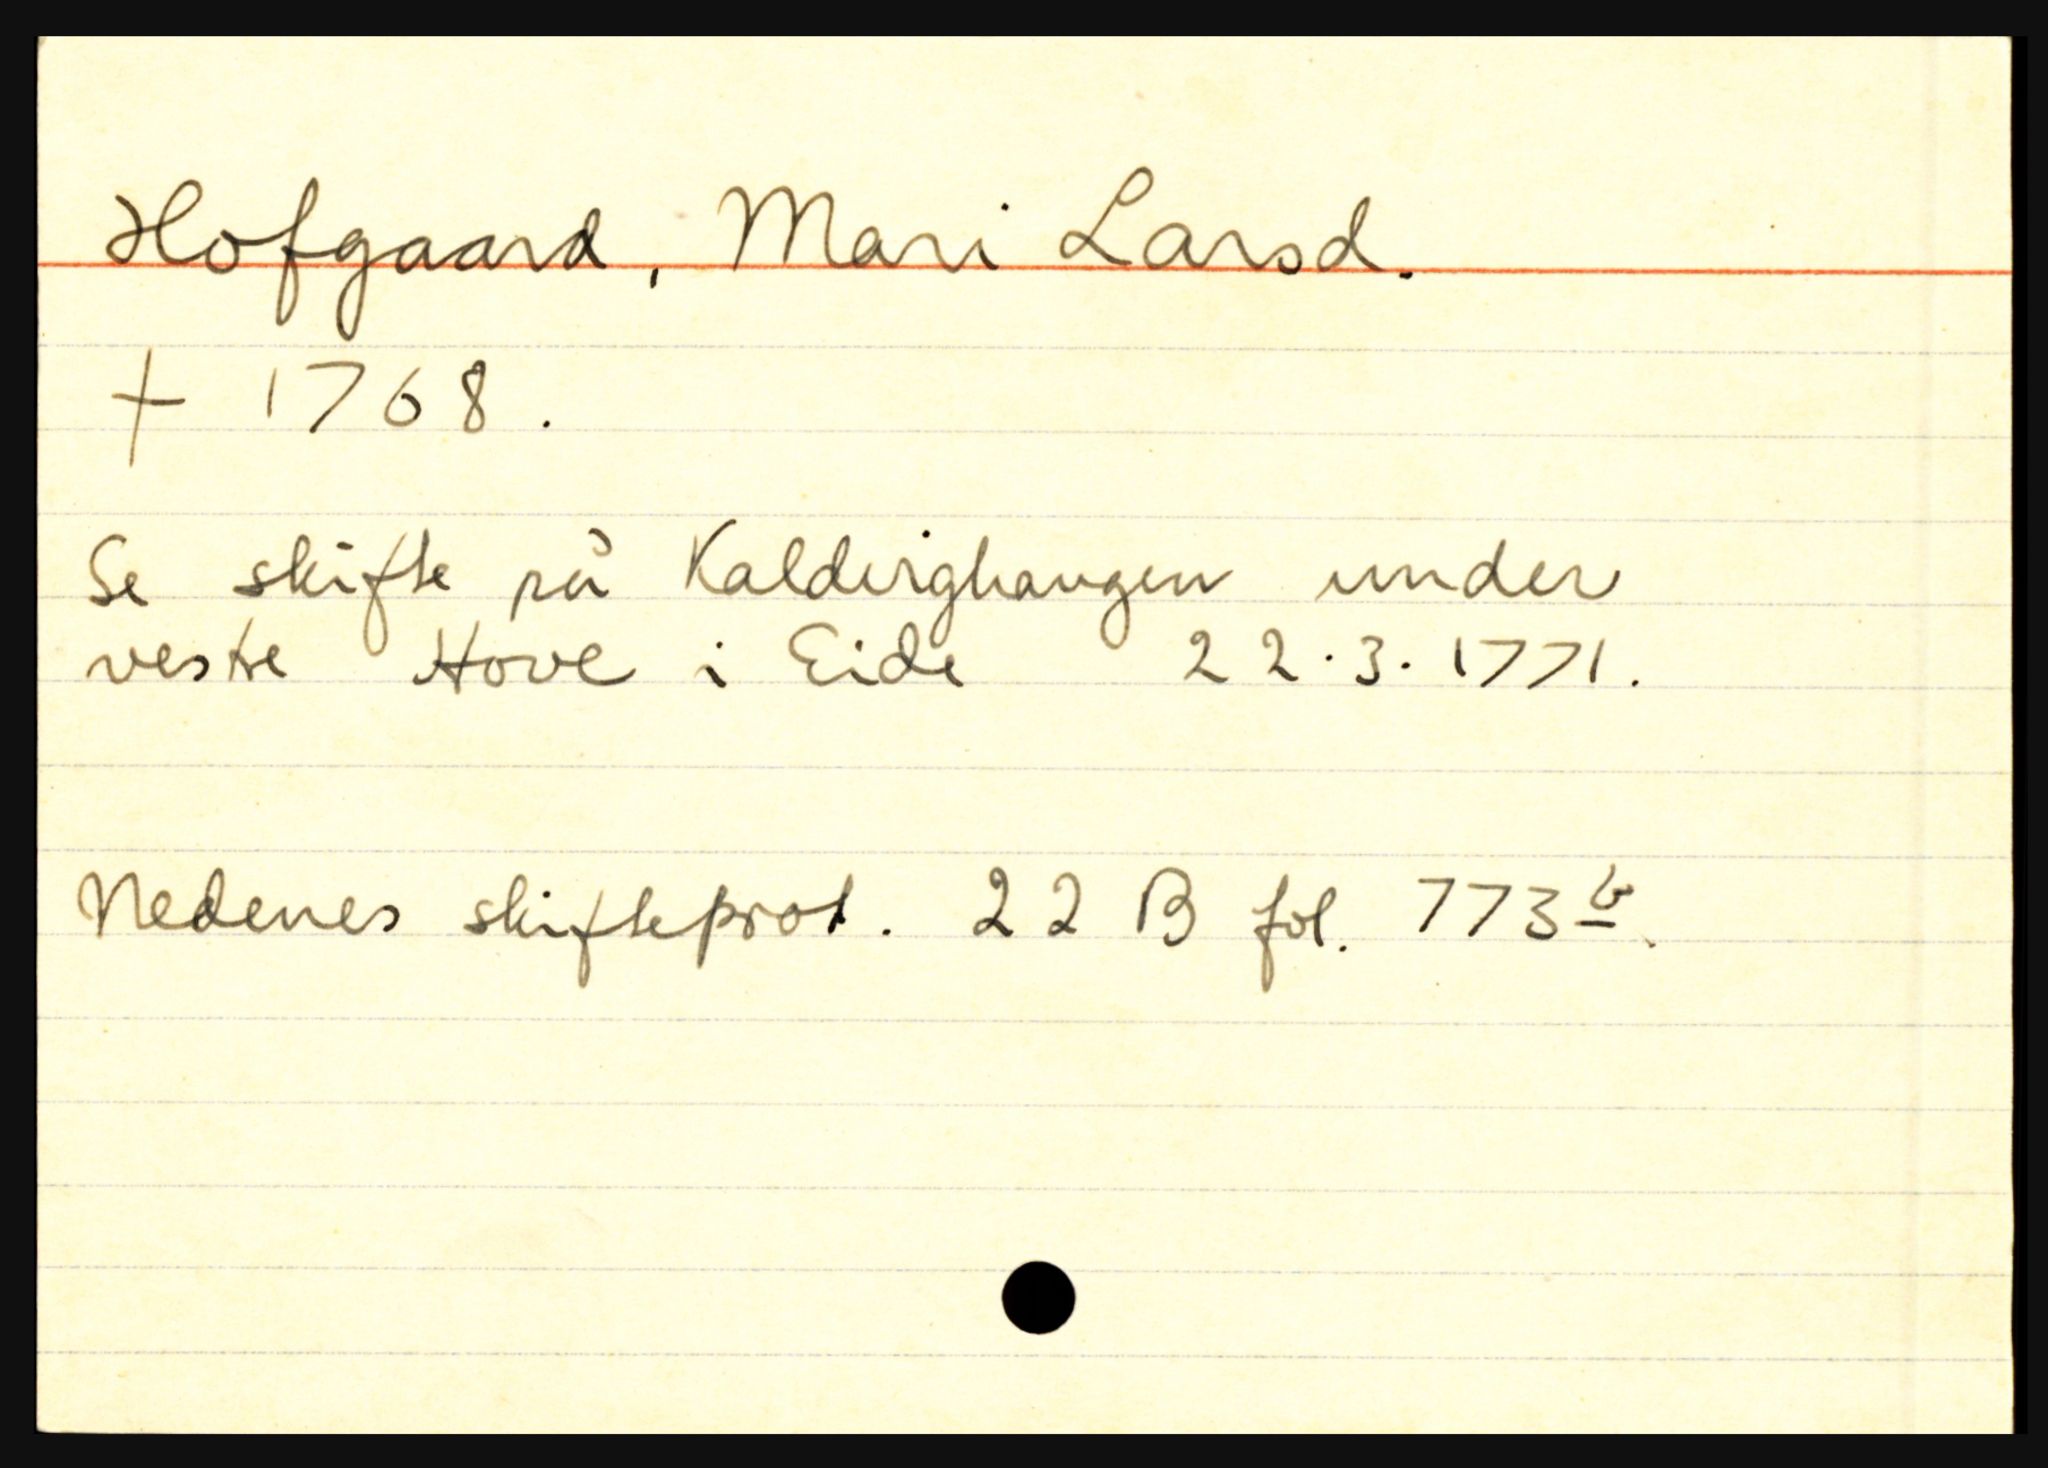 Hofgaard, Mari Larsd.
+ 1768.
Se skifte på Kalderighaugen under
vestre Hove i Eide 22.3.1771.
Nedenes skifteprot. 22 B fol. 773 b.